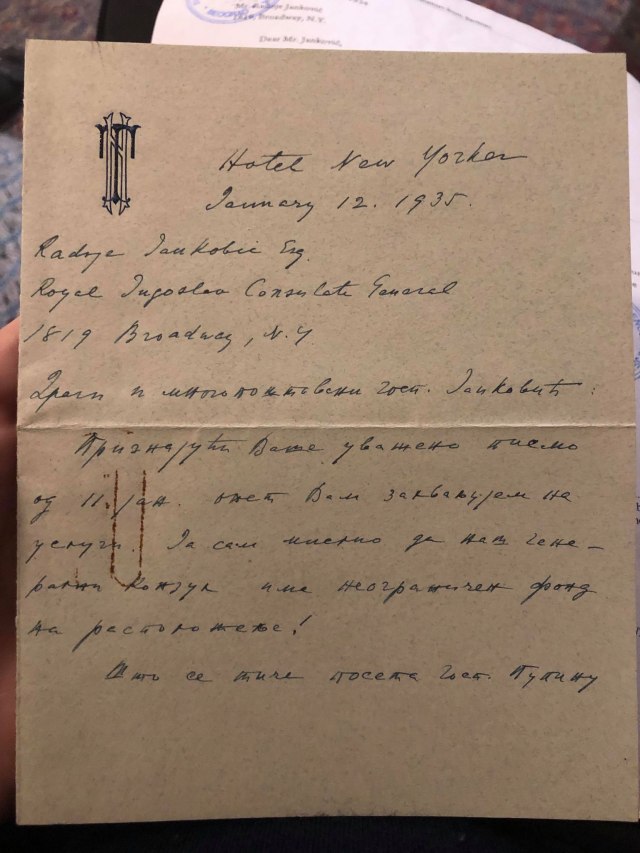 Mr. Radoje Jankovic
Broadway, N.Y.
Dear Mr. Jankovic,
NT
Hotel New Yorker
January 12. 1935.
Radoje Jankovic Esq
Royal Jugoslav Consulate General
1819 Broadway, N.Y.
Драги и многопоштовани госп. Јанковић:
Признајући Ваше уважено писмо
од 11. јан. опет Вам захваљујем на
услуги. Ја сам мислио да наш гене-
рални Конзул има неограничен фонд
на расположење!
Што се тиче посета госп. Пупину